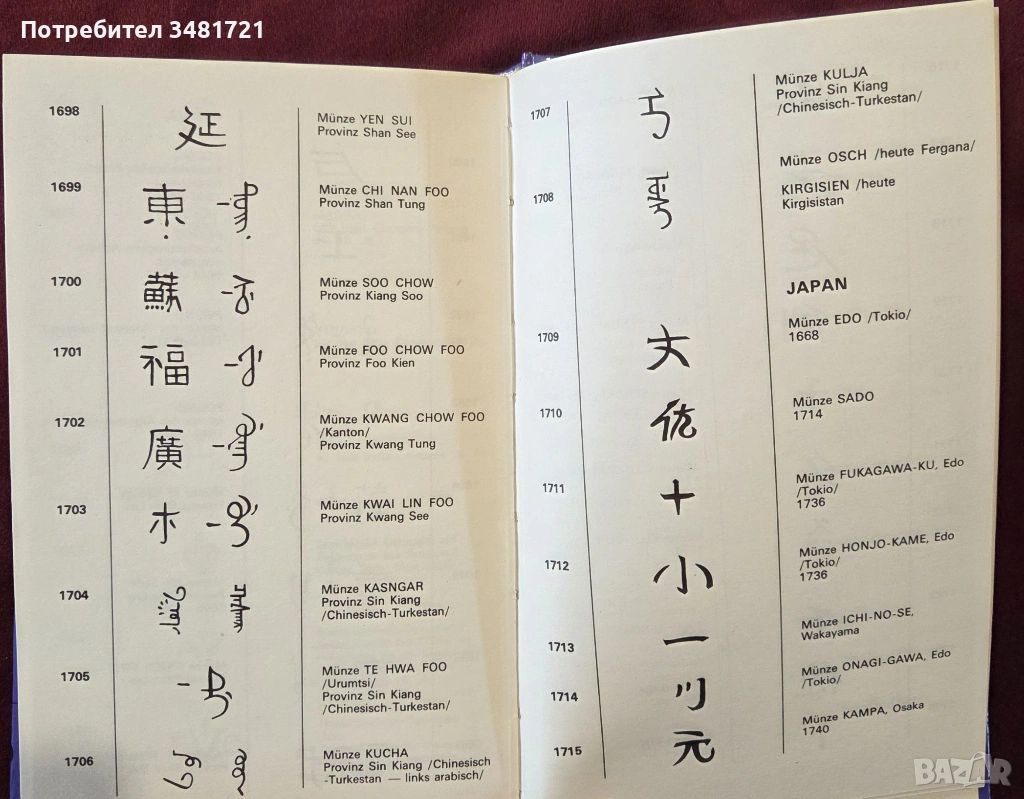 Потребител 3481721
1698
延
Münze YEN SUI
Provinz Shan See
1699
東
Münze CHI NAN FOO
Provinz Shan Tung
1700
蘇
Münze SOO CHOW
Provinz Kiang Soo
1701
福
Münze FOO CHOW FOO
Provinz Foo Kien
1702
廣
Münze KWANG CHOW FOO
/Kanton/
Provinz Kwang Tung
1703
Münze KWAI LIN FOO
Provinz Kwang See
1704
Münze KASNGAR
Provinz Sin Kiang
/Chinesisch-Turkestan/
1705
Münze TE HWA FOO
/Urumtsi/
Provinz Sin Kiang
/Chinesisch-Turkestan/
1706
Münze KUCHA
Provinz Sin Kiang /Chinesisch
-Turkestan — links arabisch/
1707
Münze KULJA
Provinz Sin Kiang
/Chinesisch-Turkestan/
Münze OSCH /heute Fergana/
1708
KIRGISIEN /heute
Kirgisistan
JAPAN
1709
Münze EDO /Tokio/
1668
1710
佐
Münze SADO
1714
1711
十
Münze FUKAGAWA-KU, Edo
/Tokio/
1736
1712
小
Münze HONJO-KAME, Edo
/Tokio/
1736
1713
一
Münze ICHI-NO-SE,
Wakayama
1714
川
Münze ONAGI-GAWA, Edo
/Tokio/
1715
元
Münze KAMPA, Osaka
1740
BAZAR